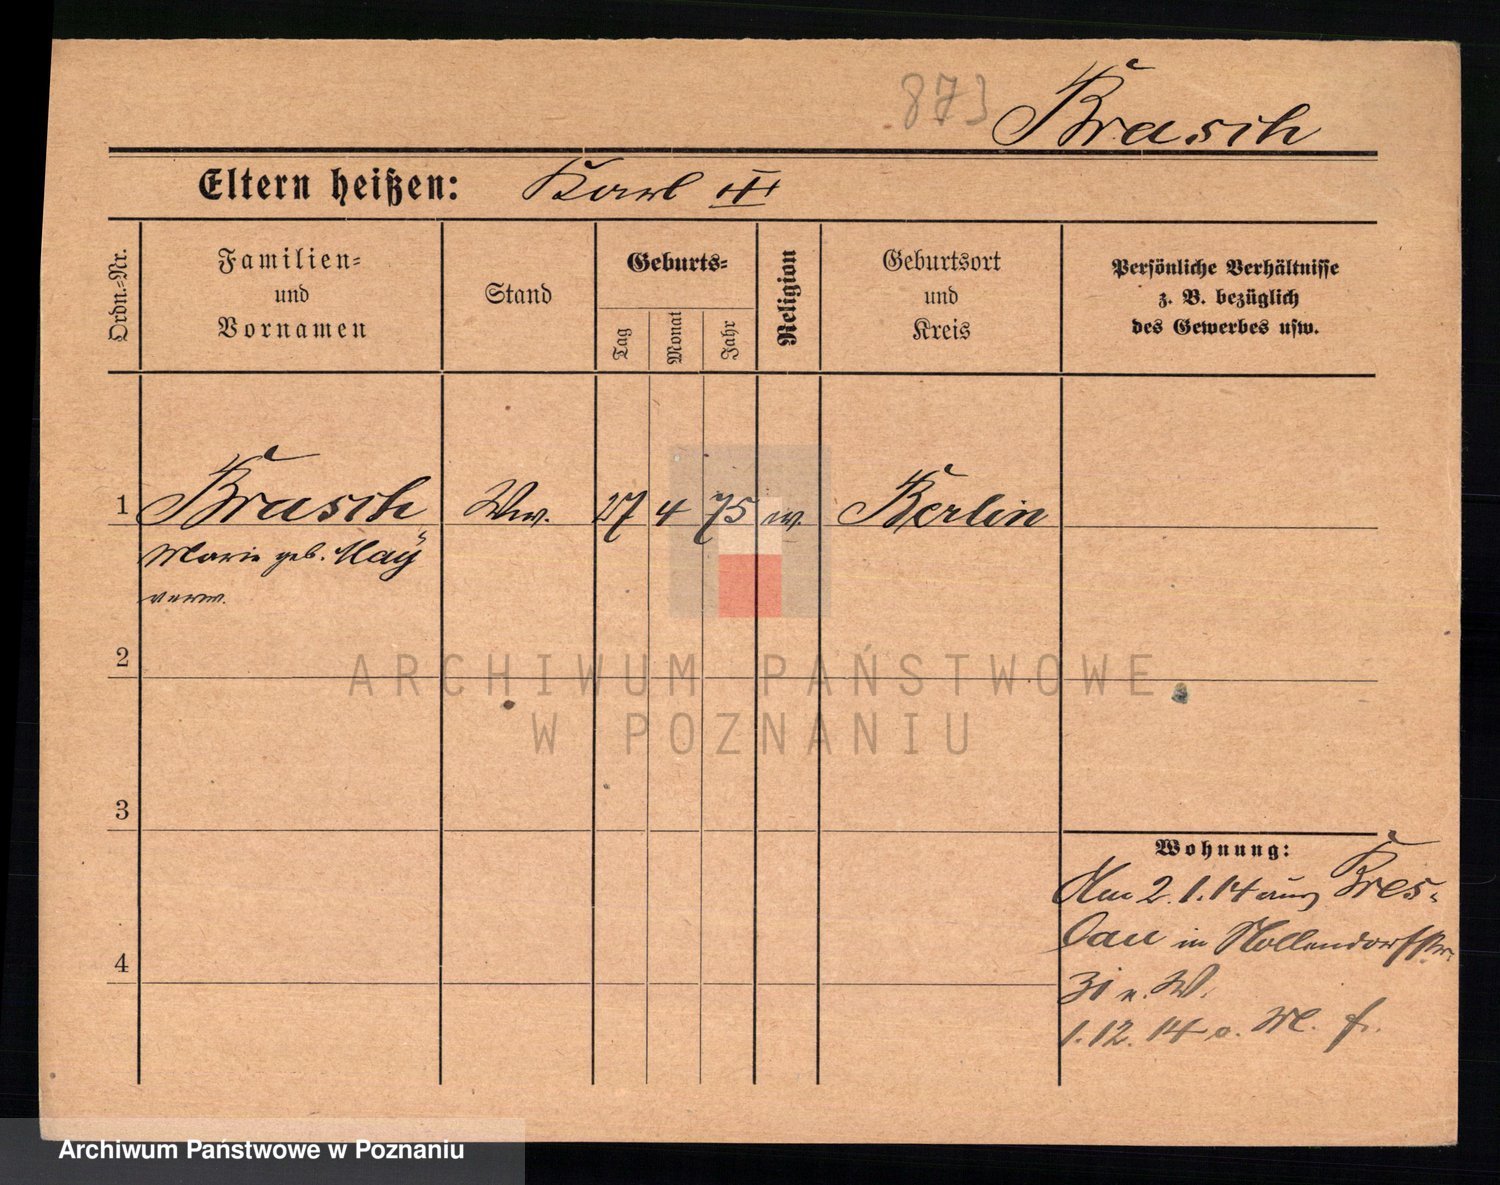 873 Brasch
Eltern heißen: Karl III
Ordn.-Nr.
Familien-
und
Vornamen
Stand
Geburts-
Tag
Monat
Jahr
Religion
Geburtsort
und
Kreis
Persönliche Verhältnisse
z. B. bezüglich
des Gewerbes usw.
1 Brasch Ww. 27 4 75 Berlin
Marie geb. Maÿ
verw.
2
ARCHIWUM PAŃSTWOWE
W POZNANIU
3
Wohnung:
Am 2.1.14 aus Bres-
lau in Nollendorfstr.
4
31 W.
1.12.14 o. M. f.
Archiwum Państwowe w Poznaniu